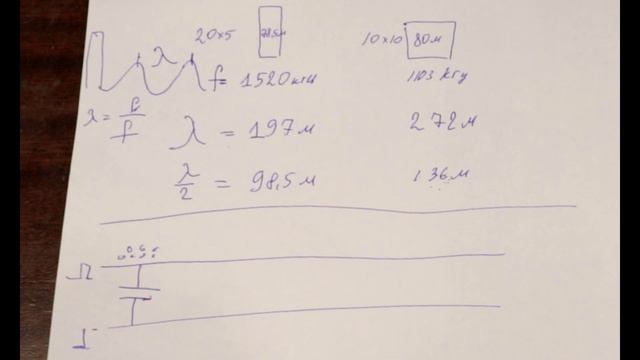 20x5 10x10 80м
λ
f = 1520 кгц 1103 кгц
λ = 197 м 272 м
λ/2 = 98,5 м 136 м